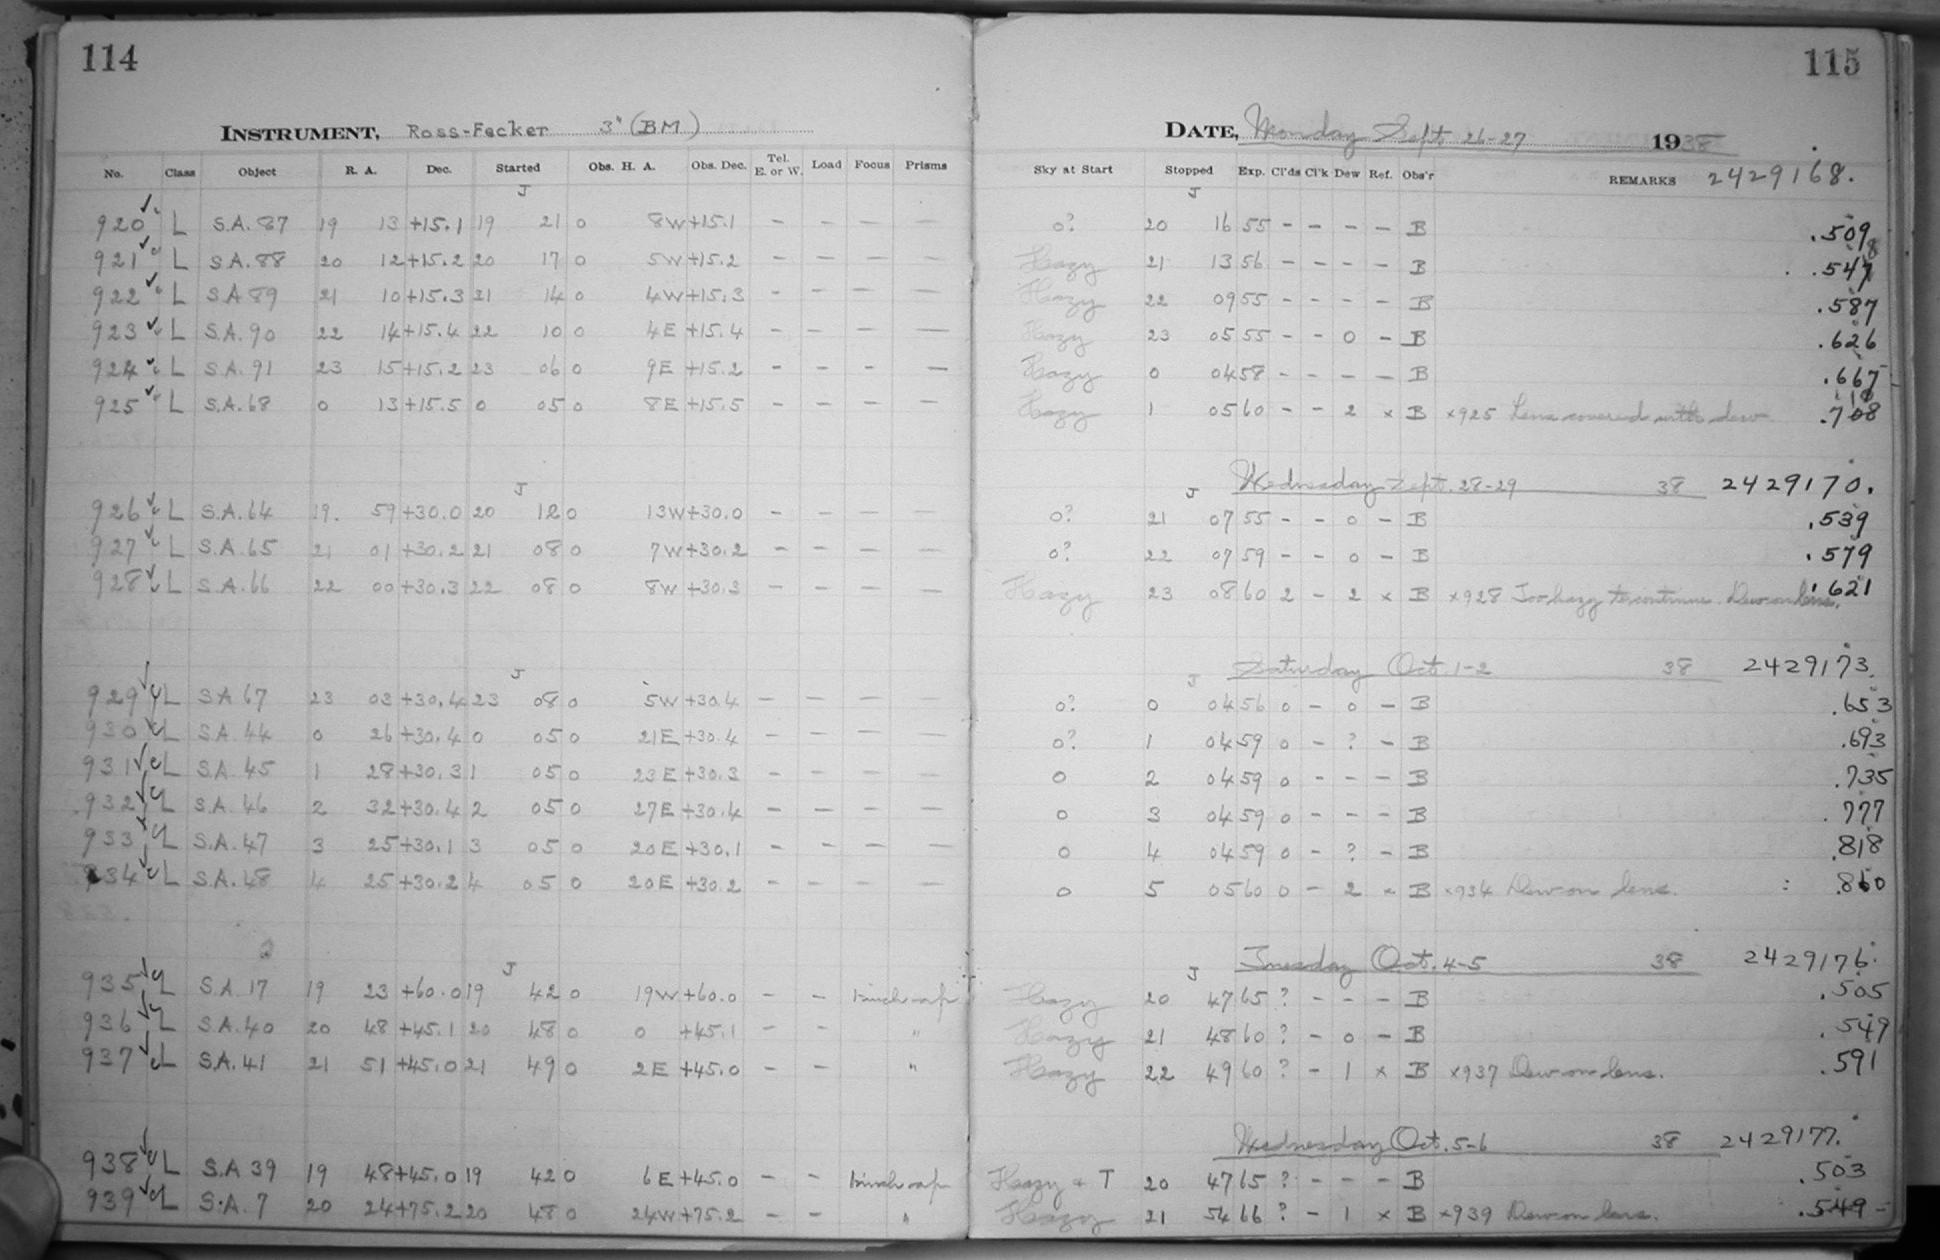 114
INSTRUMENT, Ross-Fecker 3" (BM)
No. Class Object R. A. Dec. Started Obs. H. A. Obs. Dec. Tel. E. or W. Load Focus Prisms
J
920 L S.A. 87 19 13 +15.1 19 21 0 8W +15.1 – – – –
921 L S.A. 88 20 12 +15.2 20 17 0 5W +15.2 – – – –
922 L S.A 89 21 10 +15.3 21 14 0 4W +15.3 – – – –
923 L S.A. 90 22 14 +15.4 22 10 0 4E +15.4 – – – –
924 L S.A. 91 23 15 +15.2 23 06 0 9E +15.2 – – – –
925 L S.A. 68 0 13 +15.5 0 05 0 8E +15.5 – – – –
J
926 L S.A. 64 19. 59 +30.0 20 12 0 13W +30.0 – – – –
927 L S.A. 65 21 01 +30.2 21 08 0 7W +30.2 – – – –
928 L S.A. 66 22 00 +30.3 22 08 0 8W +30.3 – – – –
J
929 L SA 67 23 03 +30.4 23 08 0 5W +30.4 – – – –
930 L S.A. 44 0 26 +30.4 0 05 0 21E +30.4 – – – –
931 L S.A. 45 1 28 +30.3 1 05 0 23E +30.3 – – – –
932 L S.A. 46 2 32 +30.4 2 05 0 27E +30.4 – – – –
933 L S.A. 47 3 25 +30.1 3 05 0 20E +30.1 – – – –
934 L S.A. 48 4 25 +30.2 4 05 0 20E +30.2 – – – –
J
935 L S.A. 17 19 23 +60.0 19 42 0 19W +60.0 – –
936 L S.A. 40 20 48 +45.1 20 48 0 0 +45.1 – – "
937 L S.A. 41 21 51 +45.0 21 49 0 2E +45.0 – – "
938 L S.A 39 19 48 +45.0 19 42 0 6E +45.0 – –
939 L S.A. 7 20 24 +75.2 20 48 0 24W +75.2 – – "
115
DATE, Monday Sept. 26-27 1938
Sky at Start Stopped Exp. Cl'ds Cl'k Dew Ref. Obs'r REMARKS 2429168.
J
0? 20 16 55 – – – – B .509
Hazy 21 13 56 – – – – B .548
Hazy 22 09 55 – – – – B .587
Hazy 23 05 55 – – 0 – B .626
Hazy 0 04 58 – – – – B .667
Hazy 1 05 60 – – 2 x B x925 Lens covered with dew .708
J Wednesday Sept. 28-29 38 2429170.
0? 21 07 55 – – 0 – B .539
0? 22 07 59 – – 0 – B .579
Hazy 23 08 60 2 – 2 x B x928 Too hazy to continue. Dew on lens. .621
J Saturday Oct. 1-2 38 2429173.
0? 0 04 56 0 – 0 – B .653
0? 1 04 59 0 – ? – B .693
0 2 04 59 0 – – – B .735
0 3 04 59 0 – – – B .777
0 4 04 59 0 – ? – B .818
0 5 05 60 0 – 2 x B x934 Dew on lens. .860
J Tuesday Oct. 4-5 38 2429176.
Hazy 20 47 65 ? – – – B .505
Hazy 21 48 60 ? – 0 – B .549
Hazy 22 49 60 ? – 1 x B x937 Dew on lens. .591
Wednesday Oct. 5-6 38 2429177.
Hazy + T 20 47 65 ? – – – B .503
Hazy 21 54 66 ? – 1 x B x939 Dew on lens. .549